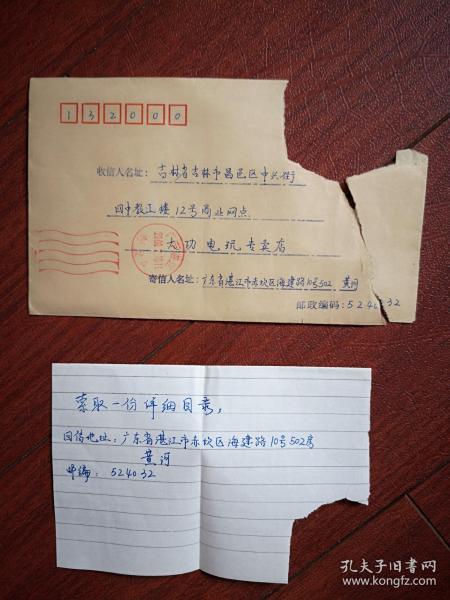 132000
收信人名址：吉林省吉林市昌邑区中兴街
四中教工楼12号商业网点
大功电玩专卖店
寄信人名址：广东省湛江市赤坎区海建路10号502 黄河
邮政编码：524032
索取一份详细目录，
回信地址：广东省湛江市赤坎区海建路10号502房
黄河
邮编：524032
孔夫子旧书网
www.kongfz.com